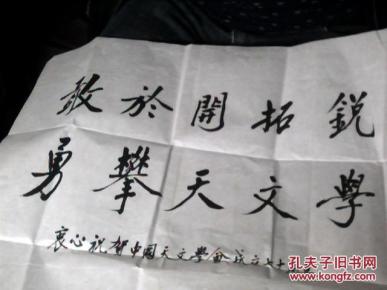 敢於開拓鋭
勇攀天文學
衷心祝賀中國天文學会成立七十
孔夫子旧书网